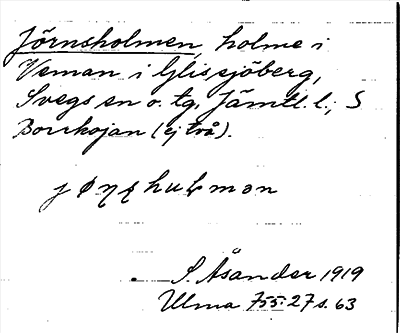 Jörnsholmen, holme i
Veman i Glissjöberg,
Svegs sn o. tg, Jämtl. l.; S
Borrkojan (ej två).
S. Åsander 1919
Ulma 755:27 s. 63